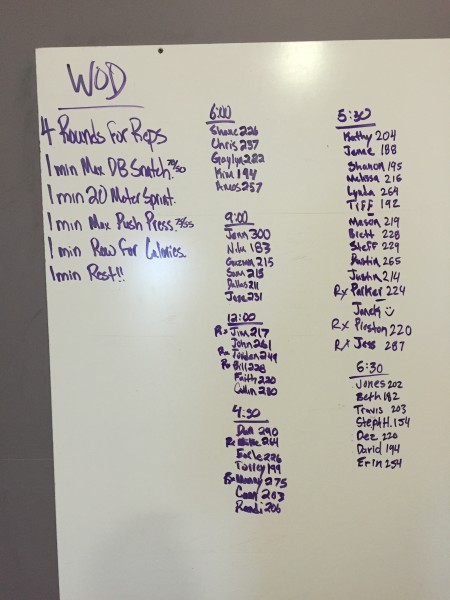 WOD
4 Rounds For Reps
1 min Max DB Snatch 70/50
1 min 20 Meter Sprint.
1 min Max Push Press 75/55
1 min Row For Calories.
1 min Rest!!
6:00
Shane 226
Chris 257
Gaylyn 222
Kim 194
Amos 257
9:00
Jenn 300
183
Guzman 215
Sam 215
Dallas 211
Jane 231
12:00
Rx Jim 217
John 261
Rx Jordan 249
Rx Bill 228
Faith 220
Collin 280
4:30
Dan 290
Rx Mike 264
Earle 226
Talley 199
Rx Manny 275
203
Randi 206
5:30
Kathy 204
Janae 188
Shanon 195
Melissa 216
Lynda 264
Tiff 192
Mason 219
Brett 228
Steff 229
Dustin 265
Justin 214
Rx Parker 224
Rx Preston 220
Rx Jess 287
6:30
Jones 202
Beth 182
Travis 203
Steph H. 154
Dez 220
David 194
Erin 254